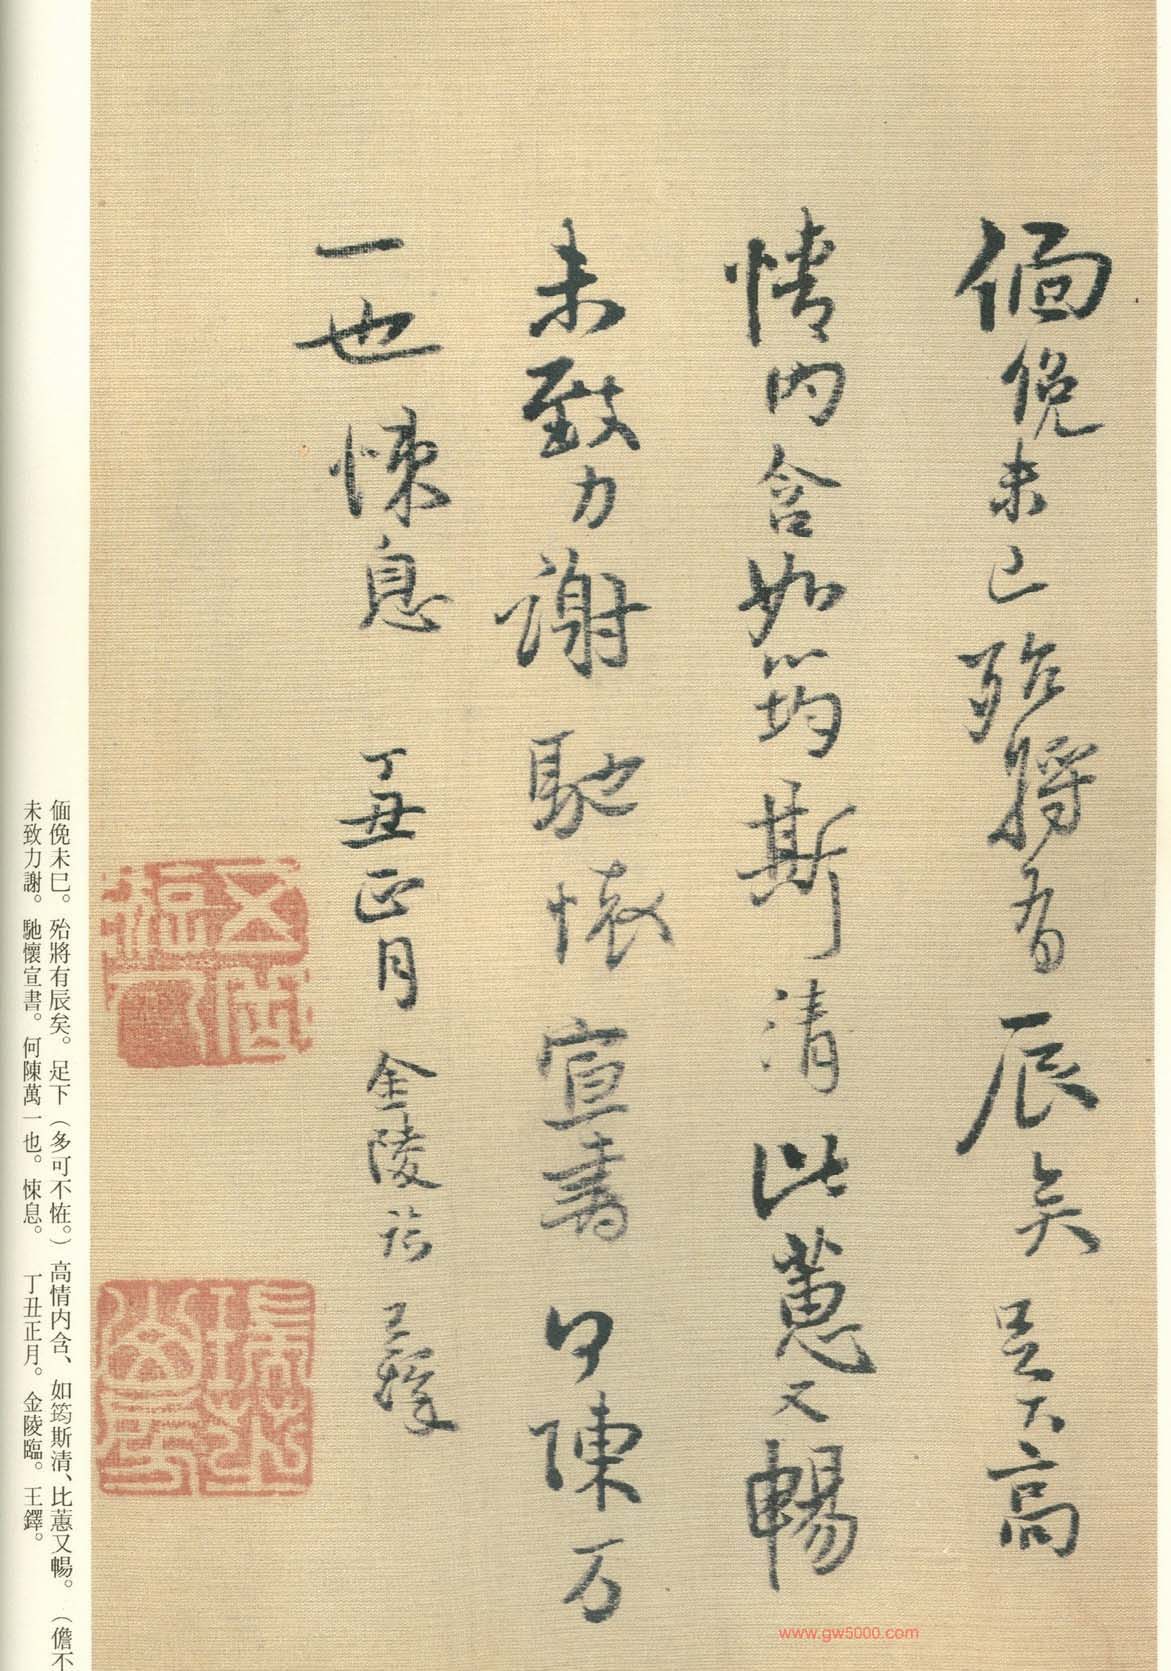 偭俛未已殆將有辰矣足下高
情内含如筠斯清比蕙又暢
未致力謝馳懷宣書何陳万
一也悚息 丁丑正月金陵臨王鐸
偭俛未巳。殆將有辰矣。足下（多可不恠。）高情内含、如筠斯清、比蕙又暢。（儋不
未致力謝。馳懷宣書。何陳萬一也。悚息。 丁丑正月。金陵臨。王鐸。
www.gw5000.com